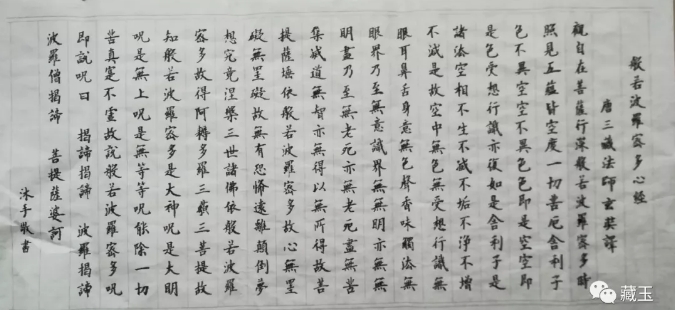 般若波羅密多心經
唐三藏法師玄奘譯
觀自在菩薩行深般若波羅密多時
照見五蘊皆空度一切苦厄舍利子
色不異空空不異色色即是空空即
是色受想行識亦復如是舍利子是
諸法空相不生不滅不垢不淨不增
不減是故空中無色無受想行識無
眼耳鼻舌身意無色聲香味觸法無
眼界乃至無意識界無無明亦無無
明盡乃至無老死亦無老死盡無苦
集滅道無智亦無得以無所得故菩
提薩埵依般若波羅密多故心無罣
礙無罣礙故無有恐怖遠離顛倒夢
想究竟涅槃三世諸佛依般若波羅
密多故得阿耨多羅三藐三菩提故
知般若波羅密多是大神呪是大明
呪是無上呪是無等等呪能除一切
苦真實不虛故說般若波羅密多呪
即說呪曰 揭諦揭諦 波羅揭諦
波羅僧揭諦 菩提薩婆訶
沐手敬書
藏玉